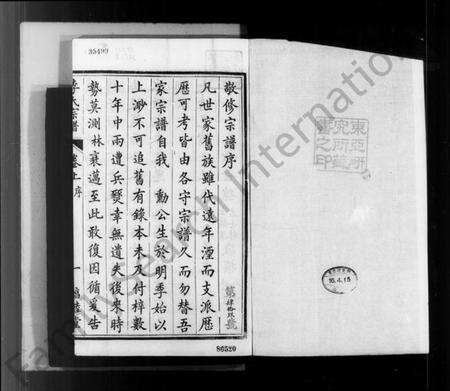 35499
敬修宗譜序
凡世家舊族雖代遠年湮而支派歷
歷可考皆由各守宗譜久而勿替吾
家宗譜自我 勳公生於明季始以
上渺不可追舊有錄本未及付梓數
十年中兩遭兵燹幸無遺失後來時
勢莫測林衰邁至此敢復因循爰告
李氏宗譜 卷上序 一
第肆拾玖號
86520
東亞研究所藏書之印
16.4.15
Family Search International